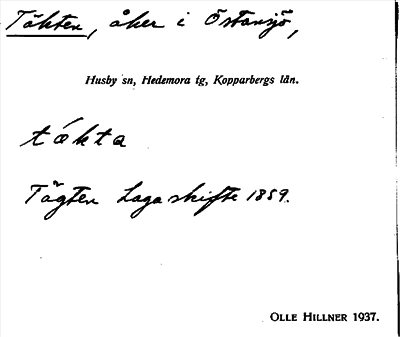 Täkten, åker i Östansjö,
Husby sn, Hedemora tg, Kopparbergs län.
tǽkta
Tägten Laga skifte 1859.
OLLE HILLNER 1937.